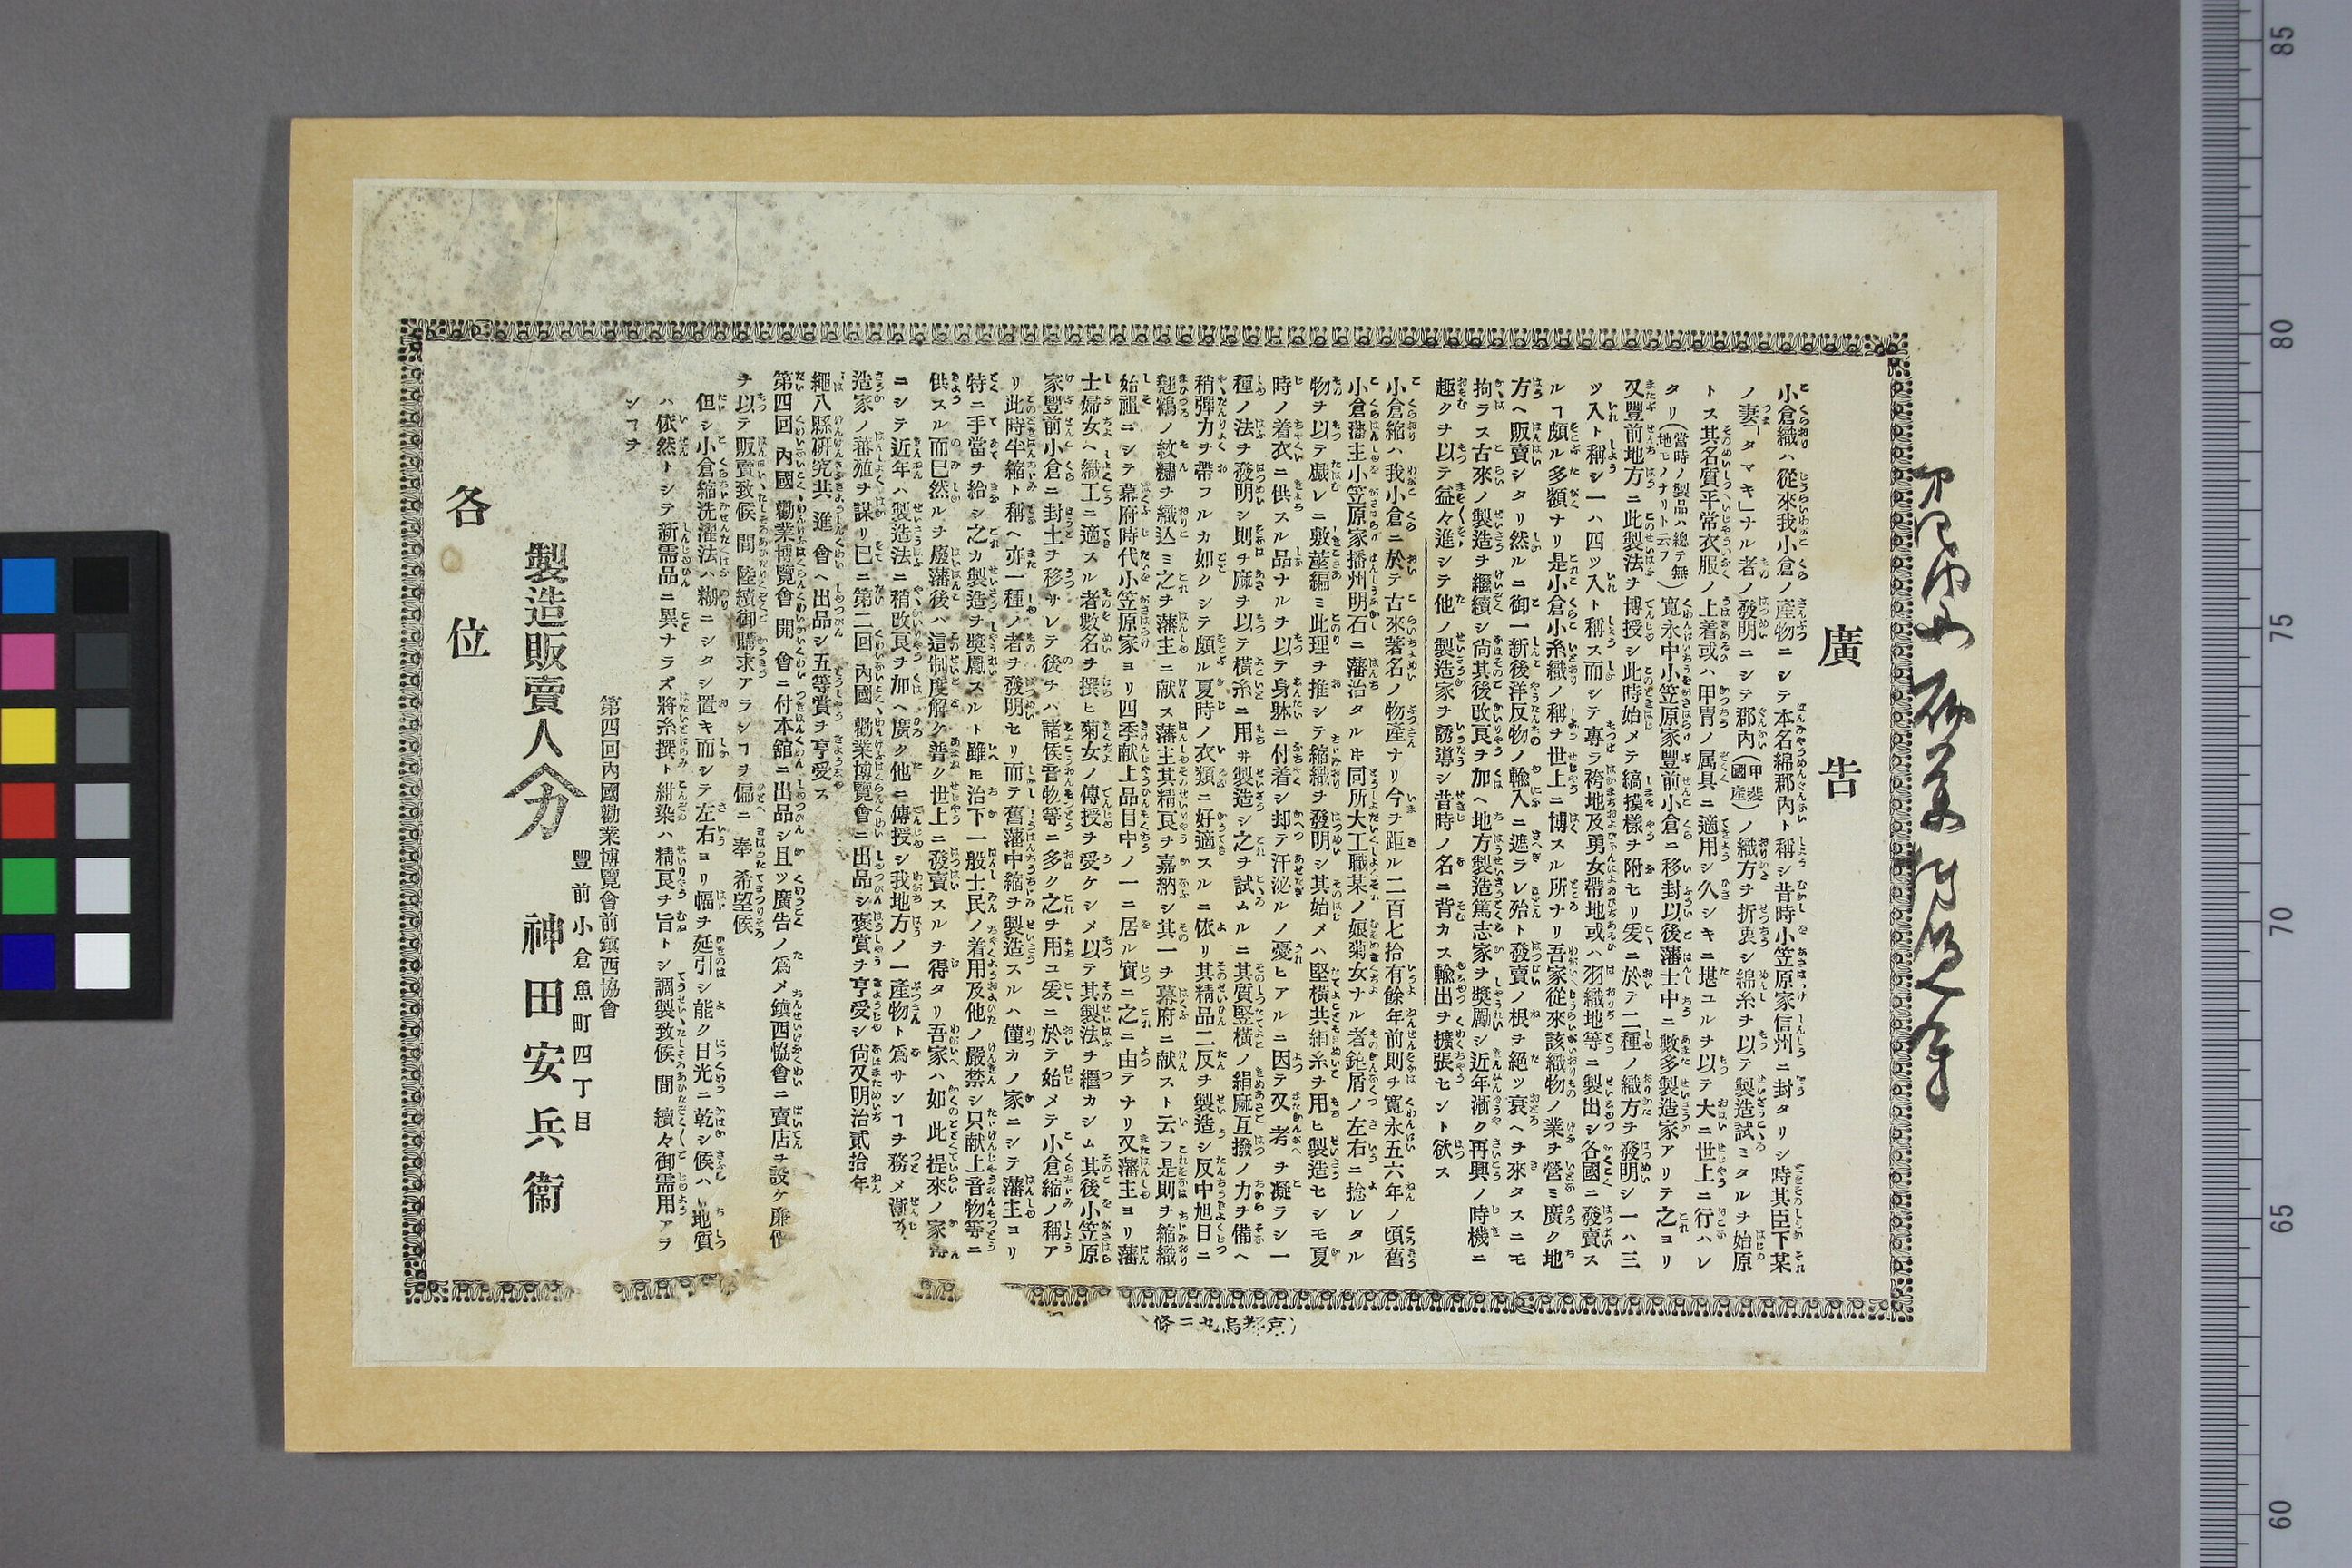 廣告
小倉織ハ從來我小倉ノ產物ニシテ本名綿郡內ト稱シ昔時小笠原家信州ニ封タリシ時其臣下某
ノ妻「タマキ」ナル者ノ發明ニシテ郡內(甲斐國產)ノ織方ヲ折衷シ綿糸ヲ以テ製造試ミタルヲ始原
トス其名質平常衣服ノ上着或ハ甲冑ノ属具ニ適用シ久シキニ堪ユルヲ以テ大ニ世上ニ行ハレ
タリ(當時ノ製品ハ總テ無地モノナリト云フ)寬永中小笠原家豐前小倉ニ移封以後藩士中ニ數多製造家アリテ之ヨリ
又豐前地方ニ此製法ヲ博授シ此時始メテ縞摸樣ヲ附セリ爰ニ於テ二種ノ織方ヲ發明シ一ハ三
ツ入ト稱シ一ハ四ツ入ト稱ス而シテ專ラ袴地及男女帶地或ハ羽織地等ニ製出シ各國ニ發賣ス
ルヿ頗ル多額ナリ是小倉小糸織ノ稱ヲ世上ニ博スル所ナリ吾家從來該織物ノ業ヲ營ミ廣ク地
方ヘ販賣シタリ然ルニ御一新後洋反物ノ輸入ニ遮ラレ殆ト發賣ノ根ヲ絕ツ衰ヘヲ來タスニモ
拘ラス古來ノ製造ヲ繼續シ尙其後改良ヲ加ヘ地方製造篤志家ヲ獎勵シ近年漸ク再興ノ時機ニ
趣クヲ以テ益々進シテ他ノ製造家ヲ誘導シ昔時ノ名ニ背カス輸出ヲ擴張セント欲ス
小倉縮ハ我小倉ニ於テ古來著名ノ物產ナリ今ヲ距ル二百七拾有餘年前則ヲ寬永五六年ノ頃舊
小倉藩主小笠原家播州明石ニ藩治タル𪜈同所大工職某ノ娘菊女ナル者鉋屑ノ左右ニ捻レタル
物ヲ以テ戯レニ敷莚編ミ此理ヲ推シテ縮織ヲ發明シ其始メハ堅橫共絹糸ヲ用ヒ製造セシモ夏
時ノ着衣ニ供スル品ナルヲ以テ身躰ニ付着シ却テ汗泌ルノ憂ヒアルニ因テ又考ヲ凝ラシ一
種ノ法ヲ發明シ則ヲ麻ヲ以テ橫糸ニ用ヰ製造シ之ヲ試ムルニ其質竪橫ノ絹麻互撥ノ力ヲ備ヘ
稍彈力ヲ帶フルカ如クシテ頗ル夏時ノ衣類ニ好適スルニ依リ其精品二反ヲ製造シ反中旭日ニ
翹鶴ノ紋繡ヲ織込ミ之ヲ藩主ニ献ス藩主其精良ヲ嘉納シ其一ヲ幕府ニ献スト云フ是則ヲ縮織
始祖ニシテ幕府時代小笠原家ヨリ四季献上品目中ノ一ニ居ル實ニ之ニ由テナリ又藩主ヨリ藩
士婦女ヘ織工ニ適スル者數名ヲ撰ヒ菊女ノ傳授ヲ受ケシメ以テ其製法ヲ繼カシム其後小笠原
家豐前小倉ニ封土ヲ移サレテ後チハ諸侯音物等ニ多ク之ヲ用ユ爰ニ於テ始メテ小倉縮ノ稱ア
リ此時半縮ト稱ヘ亦一種ノ者ヲ發明セリ而テ舊藩中縮ヲ製造スルハ僅カノ家ニシテ藩主ヨリ
特ニ手當ヲ給シ之カ製造ヲ獎勵スルト雖𪜈治下一般士民ノ着用及他ノ嚴禁シ只献上音物等ニ
供スル而已然ルヲ廢藩後ハ這制度解ケ普ク世上ニ發賣スルヲ得タリ吾家ハ如此提來ノ家
ニシテ近年ハ製造法ニ稍改良ヲ加ヘ廣ク他ニ傳授シ我地方ノ一產物ト爲サンヿヲ務メ漸次
造家ノ蕃殖ヲ謀リ已ニ第二回內國勸業博覽會ニ出品シ褒賞ヲ享受シ尙又明治貳拾年
繩八縣硏究共進會ヘ出品シ五等賞ヲ享受ス
第四回內國勸業博覽會開會ニ付本舘ニ出品シ且ツ廣告ノ爲メ鎭西協會ニ賣店ヲ設ケ廉價
ヲ以テ販賣致候間陸續御購求アランヿヲ偏ニ奉希望候
但シ小倉縮洗濯法ハ糊ニシタシ置キ而シテ左右ヨリ幅ヲ延引シ能ク日光ニ乾シ候ハ地質
ハ依然トシテ新需品ニ異ナラズ將糸撰ト紺染ハ精良ヲ旨トシ調製致候間續々御需用アラ
ンヿヲ
第四回內國勸業博覽會前鎭西協會
豐前小倉魚町四丁目
製造販賣人 神田安兵衞
各位
京都烏丸二條